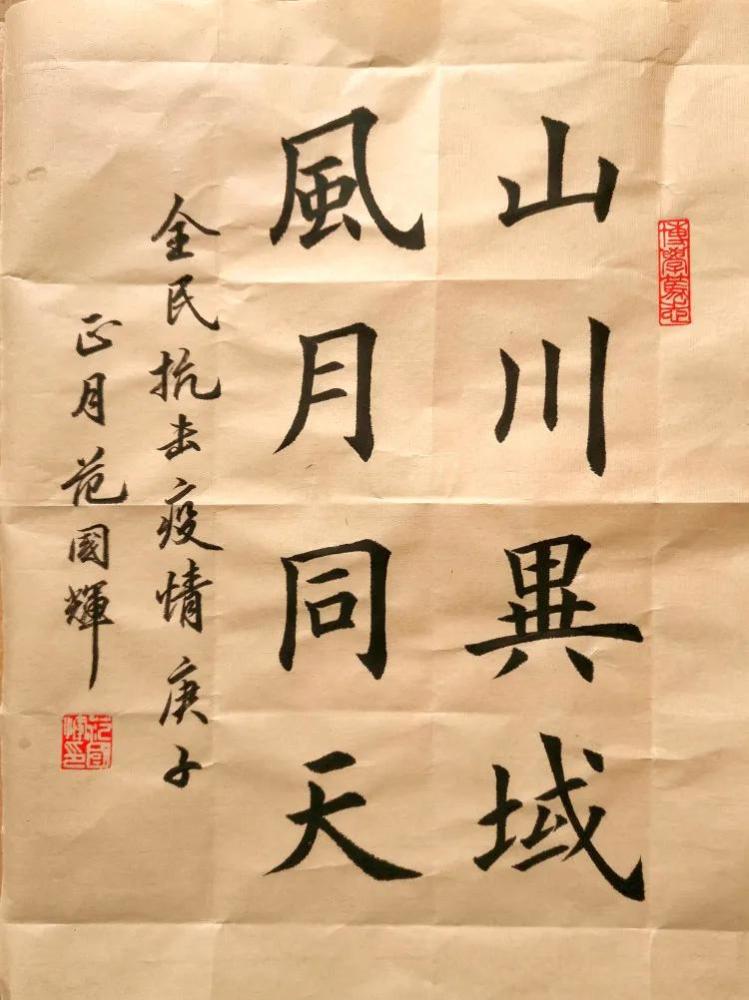 山川異域
風月同天
全民抗击疫情庚子
正月范國輝